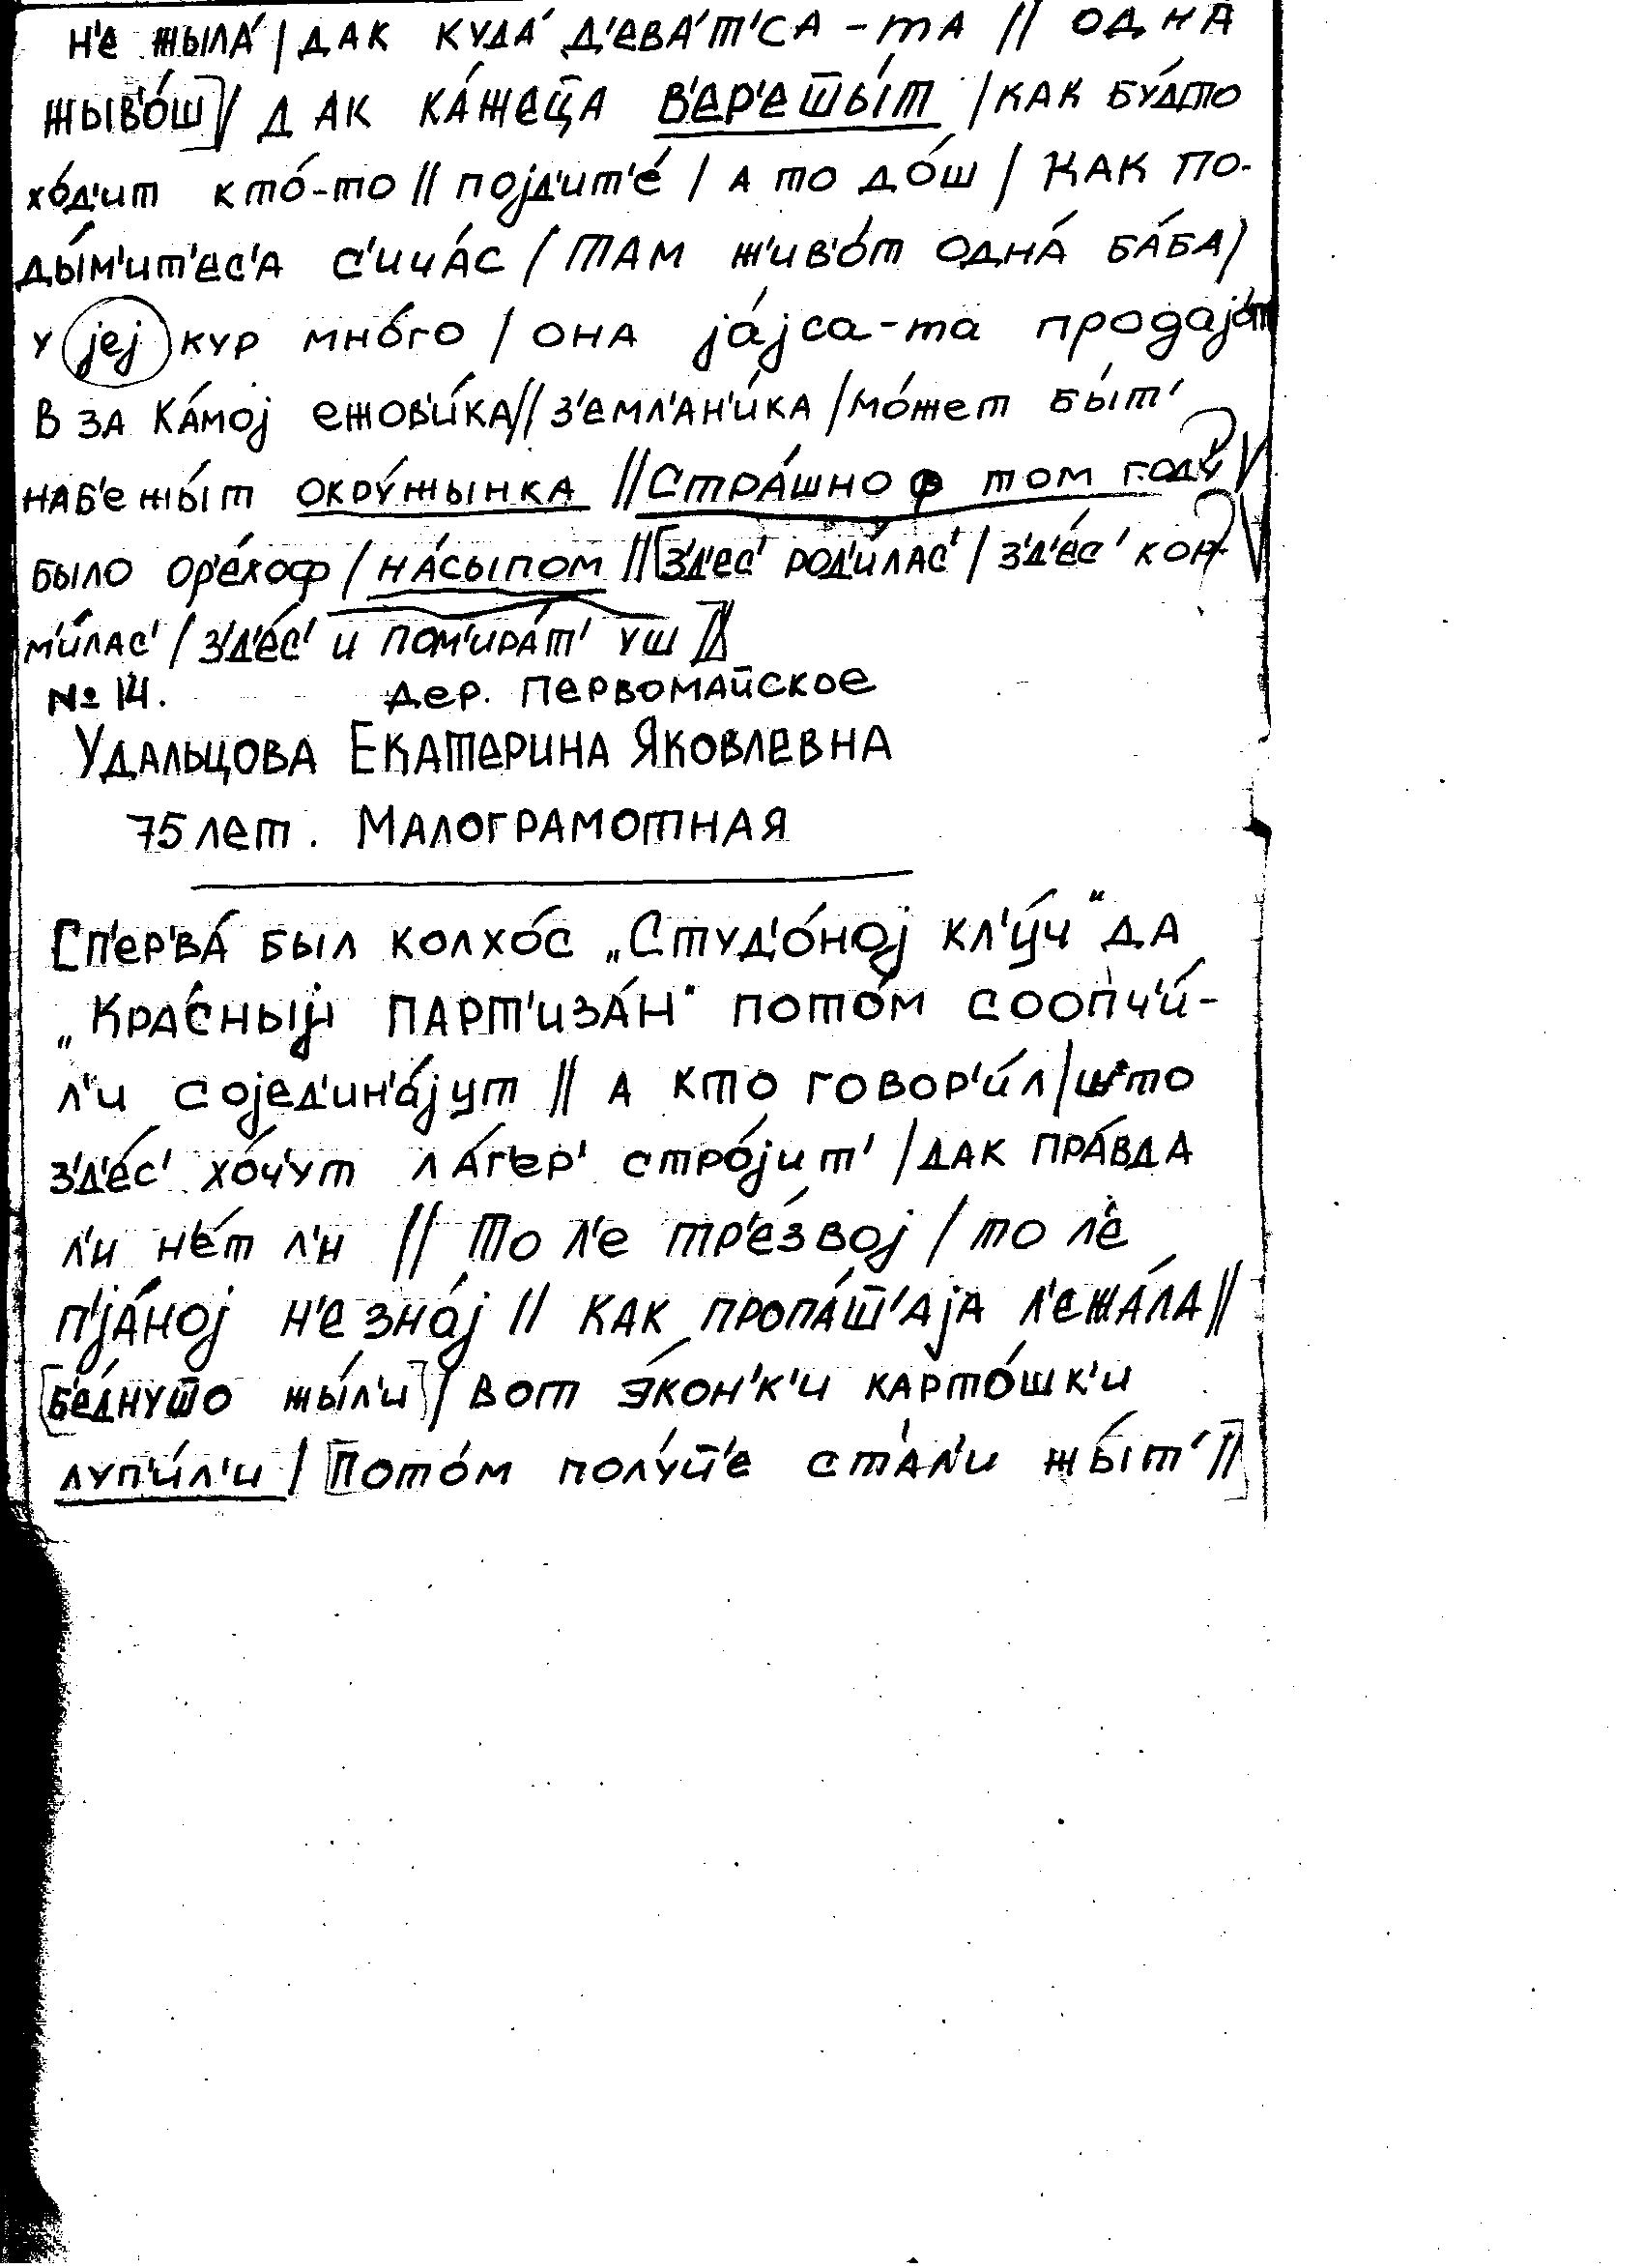 н'е жыла́ / дак куда́ д'ева́т'са-та // одна́
жыв'о́ш] / дак ка́жец̄а в'ер'ешы́т / как бу́дто
хо́д'ит кто́-то // појд'ит'е́ / а то до́ш / как по-
ды́м'ит'ес'а с'ича́с / там ж'ив'о́т одна́ ба́ба /
у јеј кур мно́го / она ја́јса-та продајо́т
в за Ка́мој ежов'и́ка // з'емл'ан'и́ка / мо́жет бы́т'
наб'ежы́т окру́жынка // Стра́шно ф том году́
было ор'е́хоф / на́сыпом // [з'д'ес' род'и́лас' / з'д'е́с' кор-
м'и́лас' / з'д'е́с' и пом'ира́т' уш] //
№ 14. дер. Первомайское
Удальцова Екатерина Яковлевна
75 лет. Малограмотная
Сп'ерва́ был колхо́с „Студ'о́ној кл'у́ч" да
„Кра́сныј парт'иза́н" пото́м сооп'ч'и́-
л'и сојед'ин'а́јут // а кто говор'и́л / што
з'д'е́с' хо́ч'ут ла́г'ер' стро́јит' / дак пра́вда
л'и н'е́т л'и // То л'е тр'е́звој / то л'е
п'ја́ној н'е зна́ј // как пропа́ш̄'аја л'ежа́ла //
[б'е́днуш̄о жы́л'и] / вот э́кон'к'и карто́шк'и
луп'и́л'и / [Пото́м полу́ч̄'е ста́л'и жы́т' //]